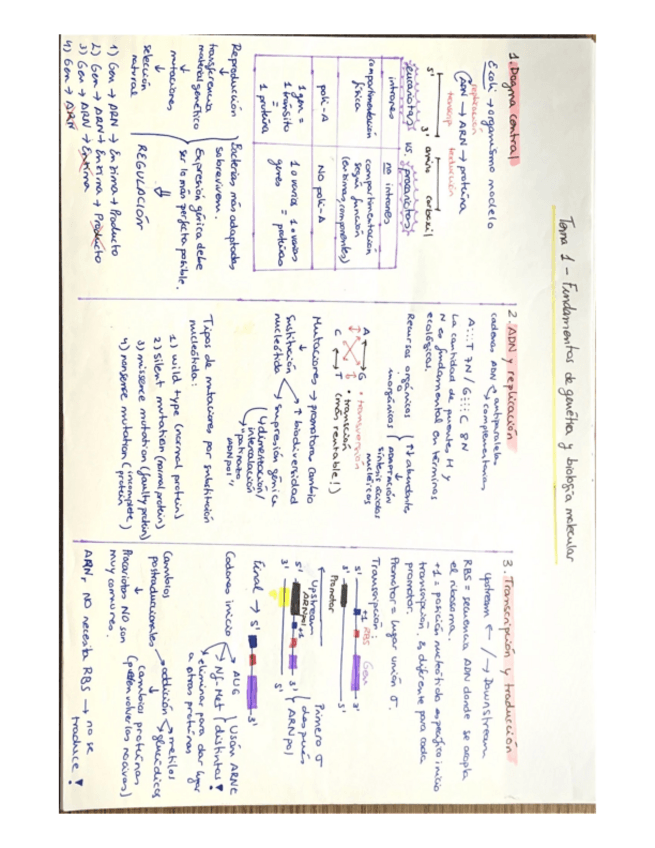 Tema 1 - Fundamentos de genética y biología molecular
1. Dogma central
E.coli → organismo modelo
replicación
(ADN → ARN → proteína
transcrip. traducción
5' 3' amino carboxil
eucariotas vs procariotas
intrones
no intrones
compartimentación
física
compartimentación
según función
(enzimas, componentes)
poli-A
NO poli-A
1 gen =
1 tránsito
=
1 proteína
1 o varios
genes
=
1 o varias
proteínas
Reproducción
↓
transferencia
material genético
↓
mutaciones
↓
selección
natural
Bacterias más adaptadas
sobreviven.
Expresión génica debe
ser lo más perfecta posible.
⇓
REGULACIÓN
1) Gen → ARN → Enzima → Producto
2) Gen → ARN → Enzima → Producto
3) Gen → ARN → Enzima
4) Gen → ARN
2. ADN y replicación
cadenas ADN antiparalelas
complementarias
A:::T 7N / G:::C 8N
La cantidad de puentes H y
N es fundamental en términos
ecológicos.
Recursos orgánicos
o
inorgánicos
↑↑ abundante
↓
adaptación
síntesis ácidos
nucleicos
A G
C T
• transversión
• transición
(más rentable!)
Mutaciones → promotora cambio
↓
Sustitución
nucleótido
↑ biodiversidad
supresión génica
↳ dimerización/
intercalación
"patinazo
ADNpol"
Tipos de mutaciones por sustitución
nucleótido:
1) wild type (normal protein)
2) silent mutation (normal protein)
3) missence mutation (faulty protein)
4) nonsense mutation (incomplete
protein)
3. Transcripción y traducción
Upstream ← / → Downstream
RBS = secuencia ADN donde se acopla
el ribosoma.
+1 = posición nucleótido específico inicio
transcripción. Es diferente para cada
promotor.
Promotor = lugar unión σ.
Transcripción:
+1 RBS Gen
5' 3'
Promotor
3' 5'
Upstream
ARNpol +1
5' 3'
3' 5'
Primero σ
después
y ARNpol
Final → 5' 3'
Codones inicio
AUG
Nf-Met
Usan ARNt
distintos!
eliminar para dar lugar
a otras proteínas
Cambios
postraduccionales
→ adición
metilos
glucídicos
↓
Procariotas NO son
muy comunes.
↓
cambios proteínas
(pueden volverlas nocivas)
ARNr NO necesita RBS → no se
traduce!